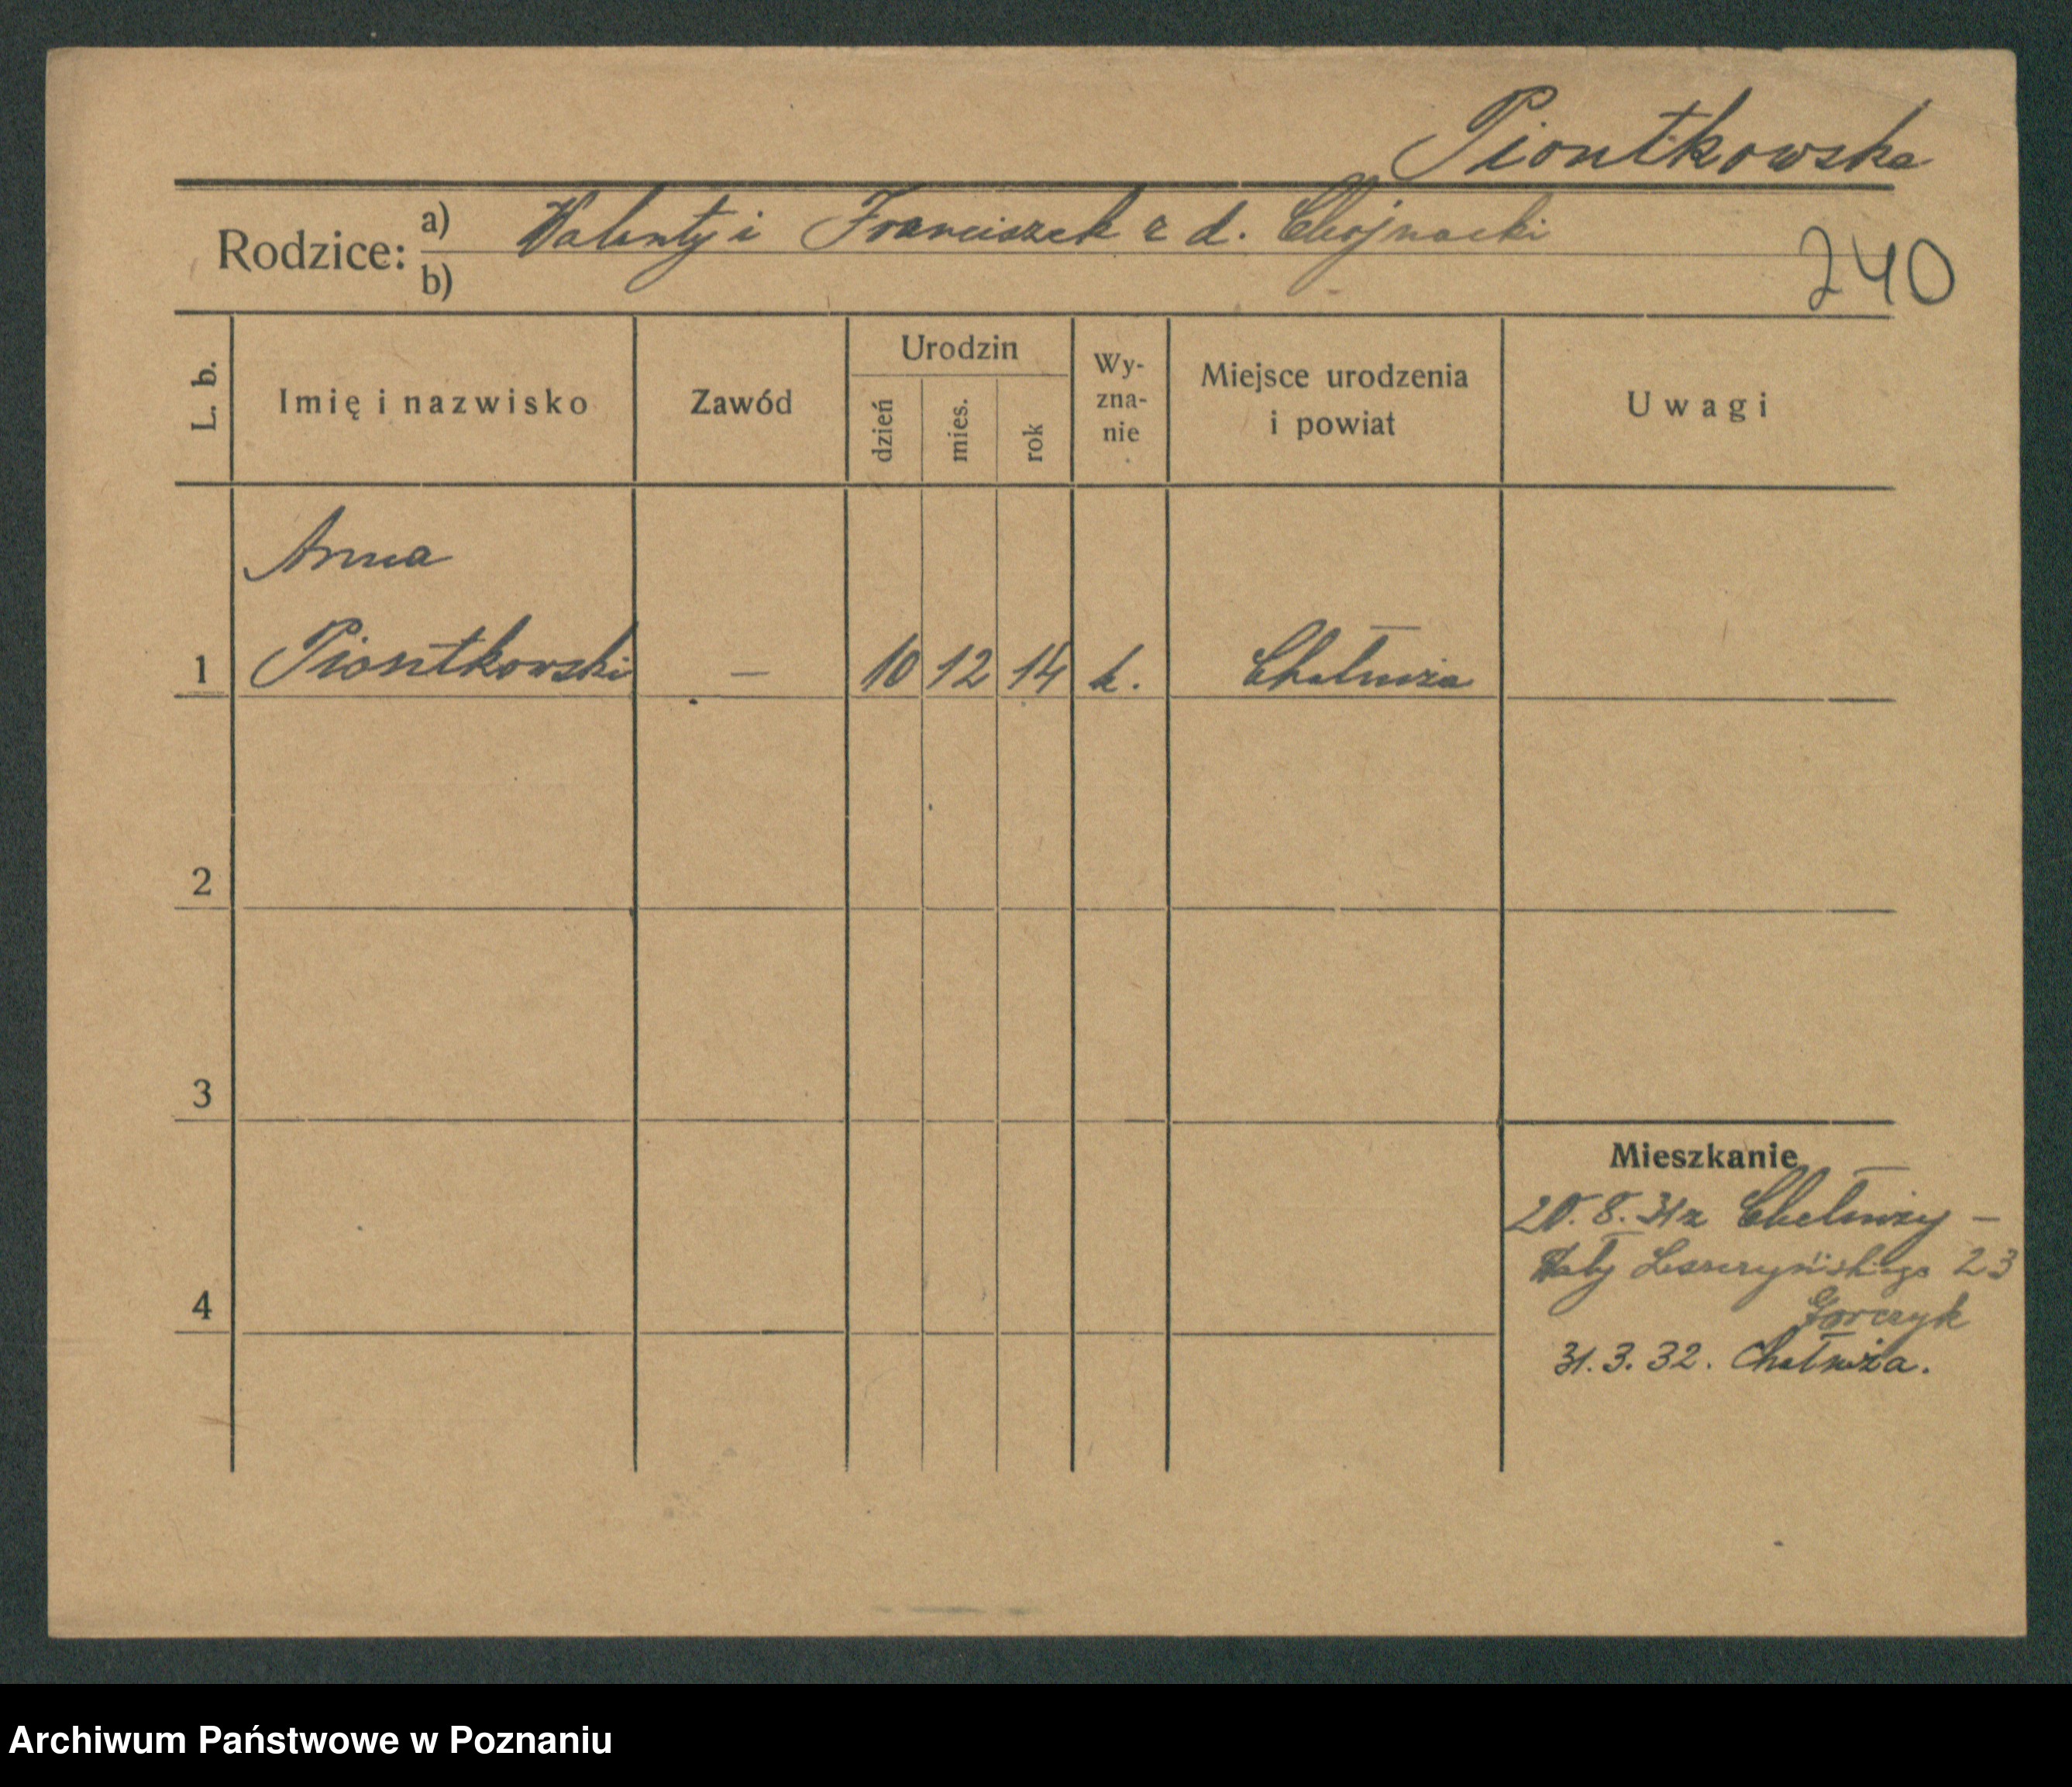 Piontkowska
Rodzice: a) Walenty i Franciszek z d. Chojnacki
b)
240
L. b.
Imię i nazwisko
Zawód
Urodzin
dzień
mies.
rok
Wy-
zna-
nie
Miejsce urodzenia
i powiat
Uwagi
Anna
1 Piontkowski — 10 12 14 k. Chełmża
2
3
4
Mieszkanie
20.8.31 z Chełmży —
Leszczyńskiego 23
Gorczyk
31.3.32. Chełmża.
Archiwum Państwowe w Poznaniu